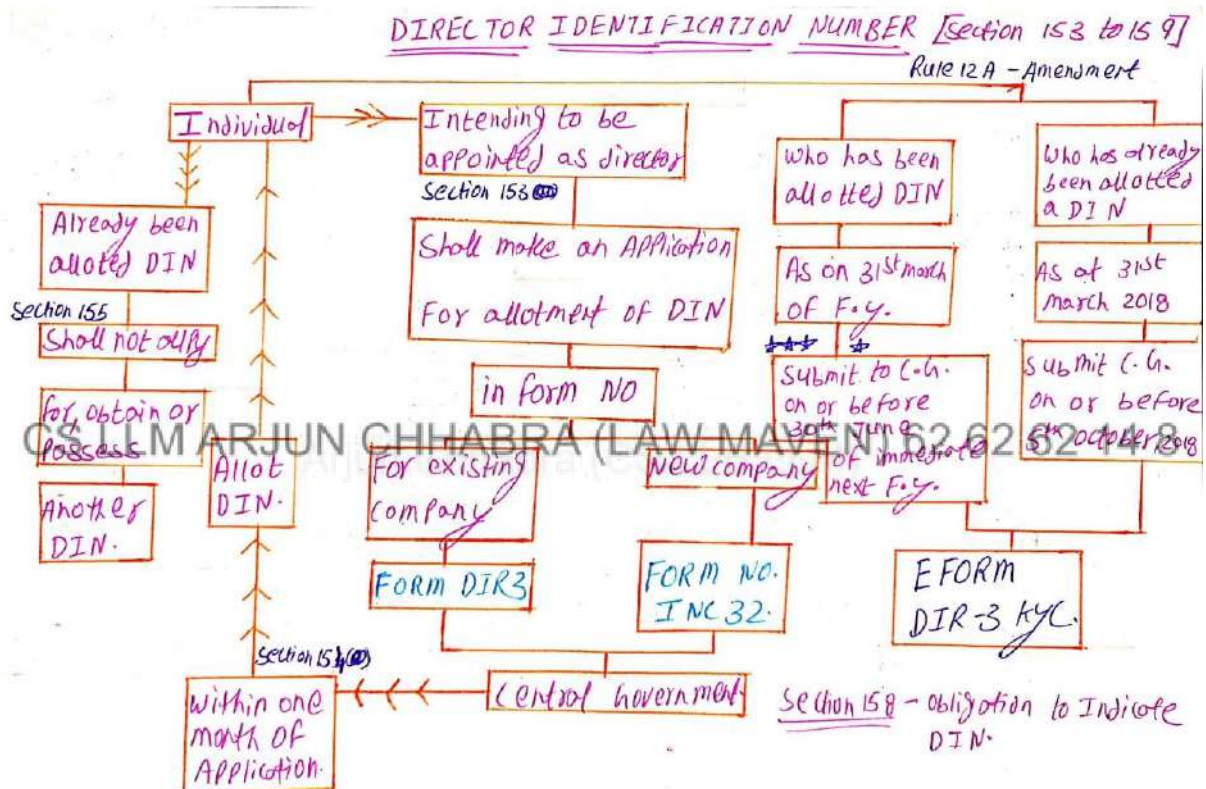 DIRECTOR IDENTIFICATION NUMBER [Section 153 to 159]
Rule 12A - Amendment
Individual
Intending to be
appointed as director
Section 153
Shall make an Application
For allotment of DIN
in form NO
For existing
company
New company
FORM DIR3
FORM NO.
INC 32.
Central Government
Section 154
Within one
month of
Application.
Allot
DIN.
Already been
alloted DIN
Section 155
Shall not
for, obtain or
Possess
Another
DIN.
who has been
allotted DIN
As on 31st march
of F.y.
Submit to C.G.
on or before
30th June
of immediate
next F.y.
Who has already
been allotted
a DIN
As at 31st
march 2018
Submit C.G.
on or before
5th october 2018
EFORM
DIR-3 KYC.
Section 158 - obligation to Indicate
DIN.
CS LLM ARJUN CHHABRA (LAW MAVEN) 62 62 62 14 8